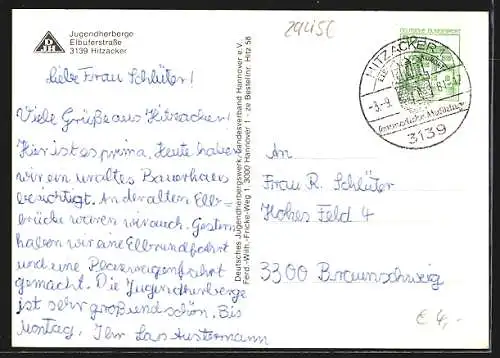 Jugendherberge
Elbuferstraße
3139 Hitzacker
29415C
DEUTSCHE BUNDESPOST
HITZACKER
3139
Liebe Frau Schlüter!
Viele Grüße aus Hitzacker!
Hier ist es prima. Heute haben
wir ein uraltes Bauerhaus
besichtigt. An der alten Elb-
brücke waren wir auch. Gestern
haben wir eine Elbrundfahrt
und eine Plaswagenfahrt
gemacht. Die Jugendherberge
ist sehr groß und schön. Bis
Montag, Ihr Lars Austermann
Deutsches Jugendherbergswerk, Landesverband Hannover e.V.
Ferd.-Wilh.-Fricke-Weg 1, 3000 Hannover 1 - zu Bestellnr. Hitz 58
An
Frau R. Schlüter
Hohes Feld 4
3300 Braunschweig
€ 4,-